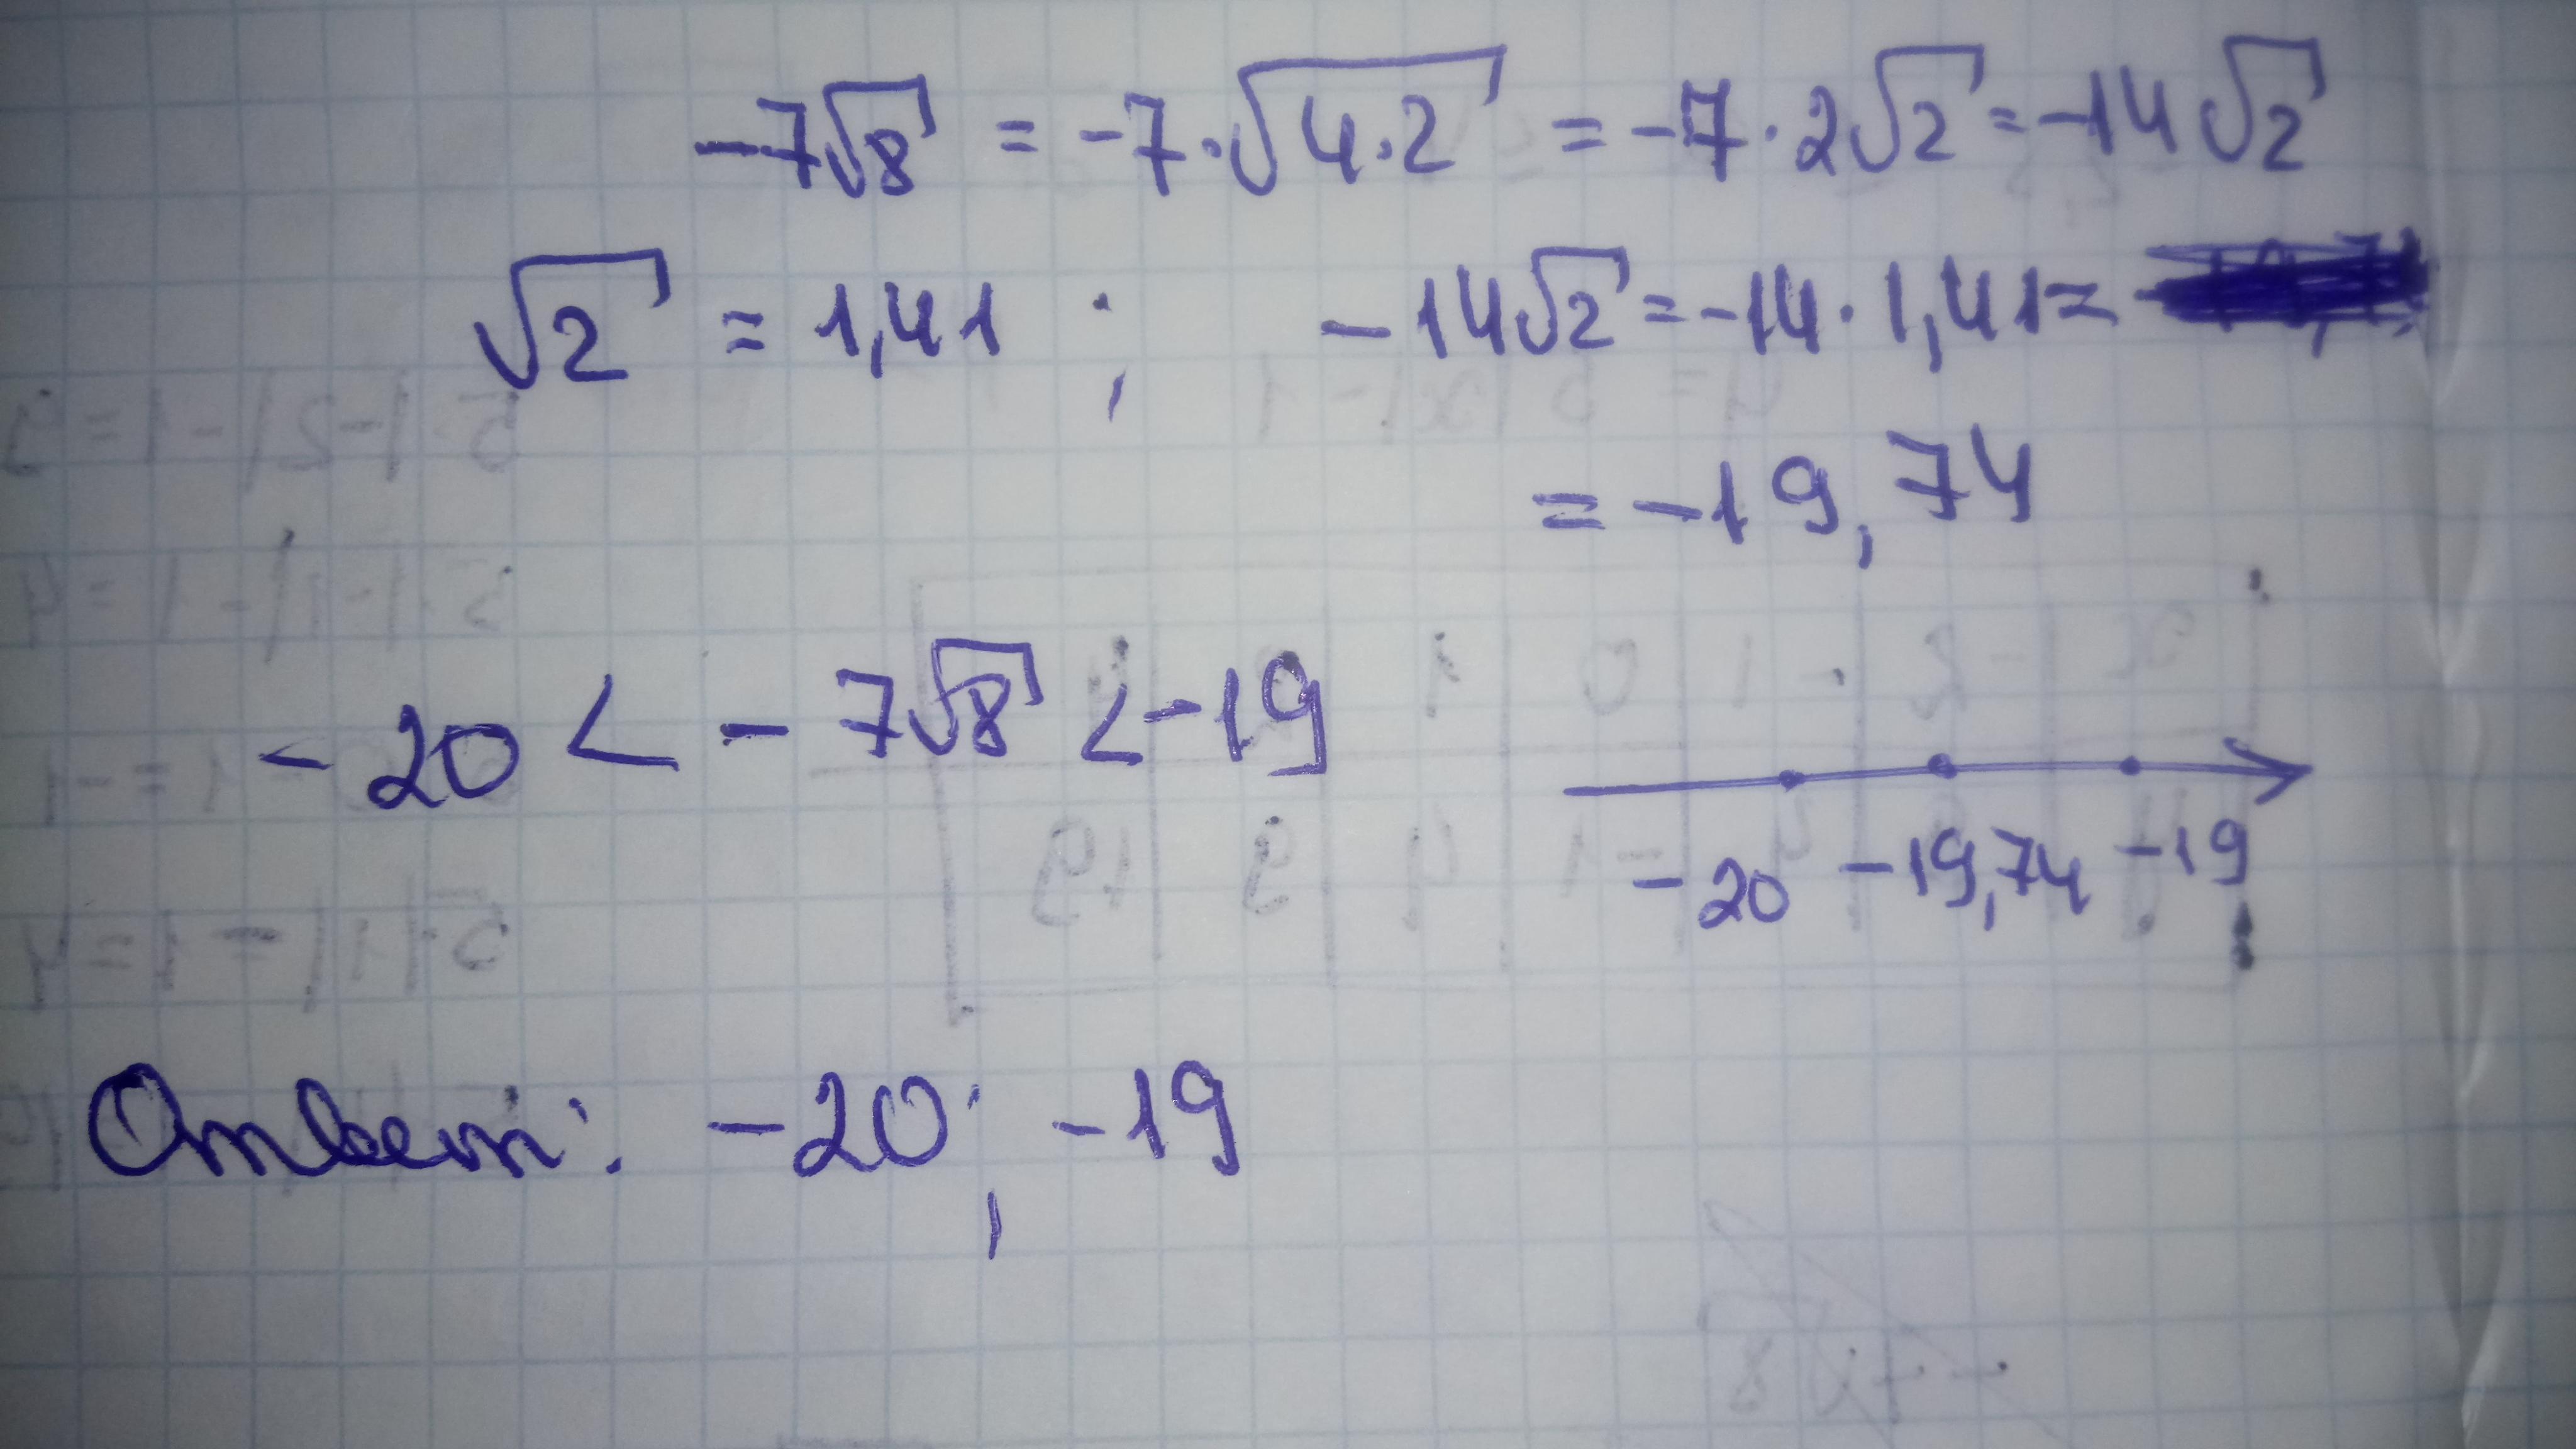 -7√8 = -7·√4·2 = -7·2√2 = -14√2
√2 = 1,41 ; -14√2 = -14·1,41 =
= -19,74
-20 < -7√8 < -19
-20 -19,74 -19
Ответ: -20; -19